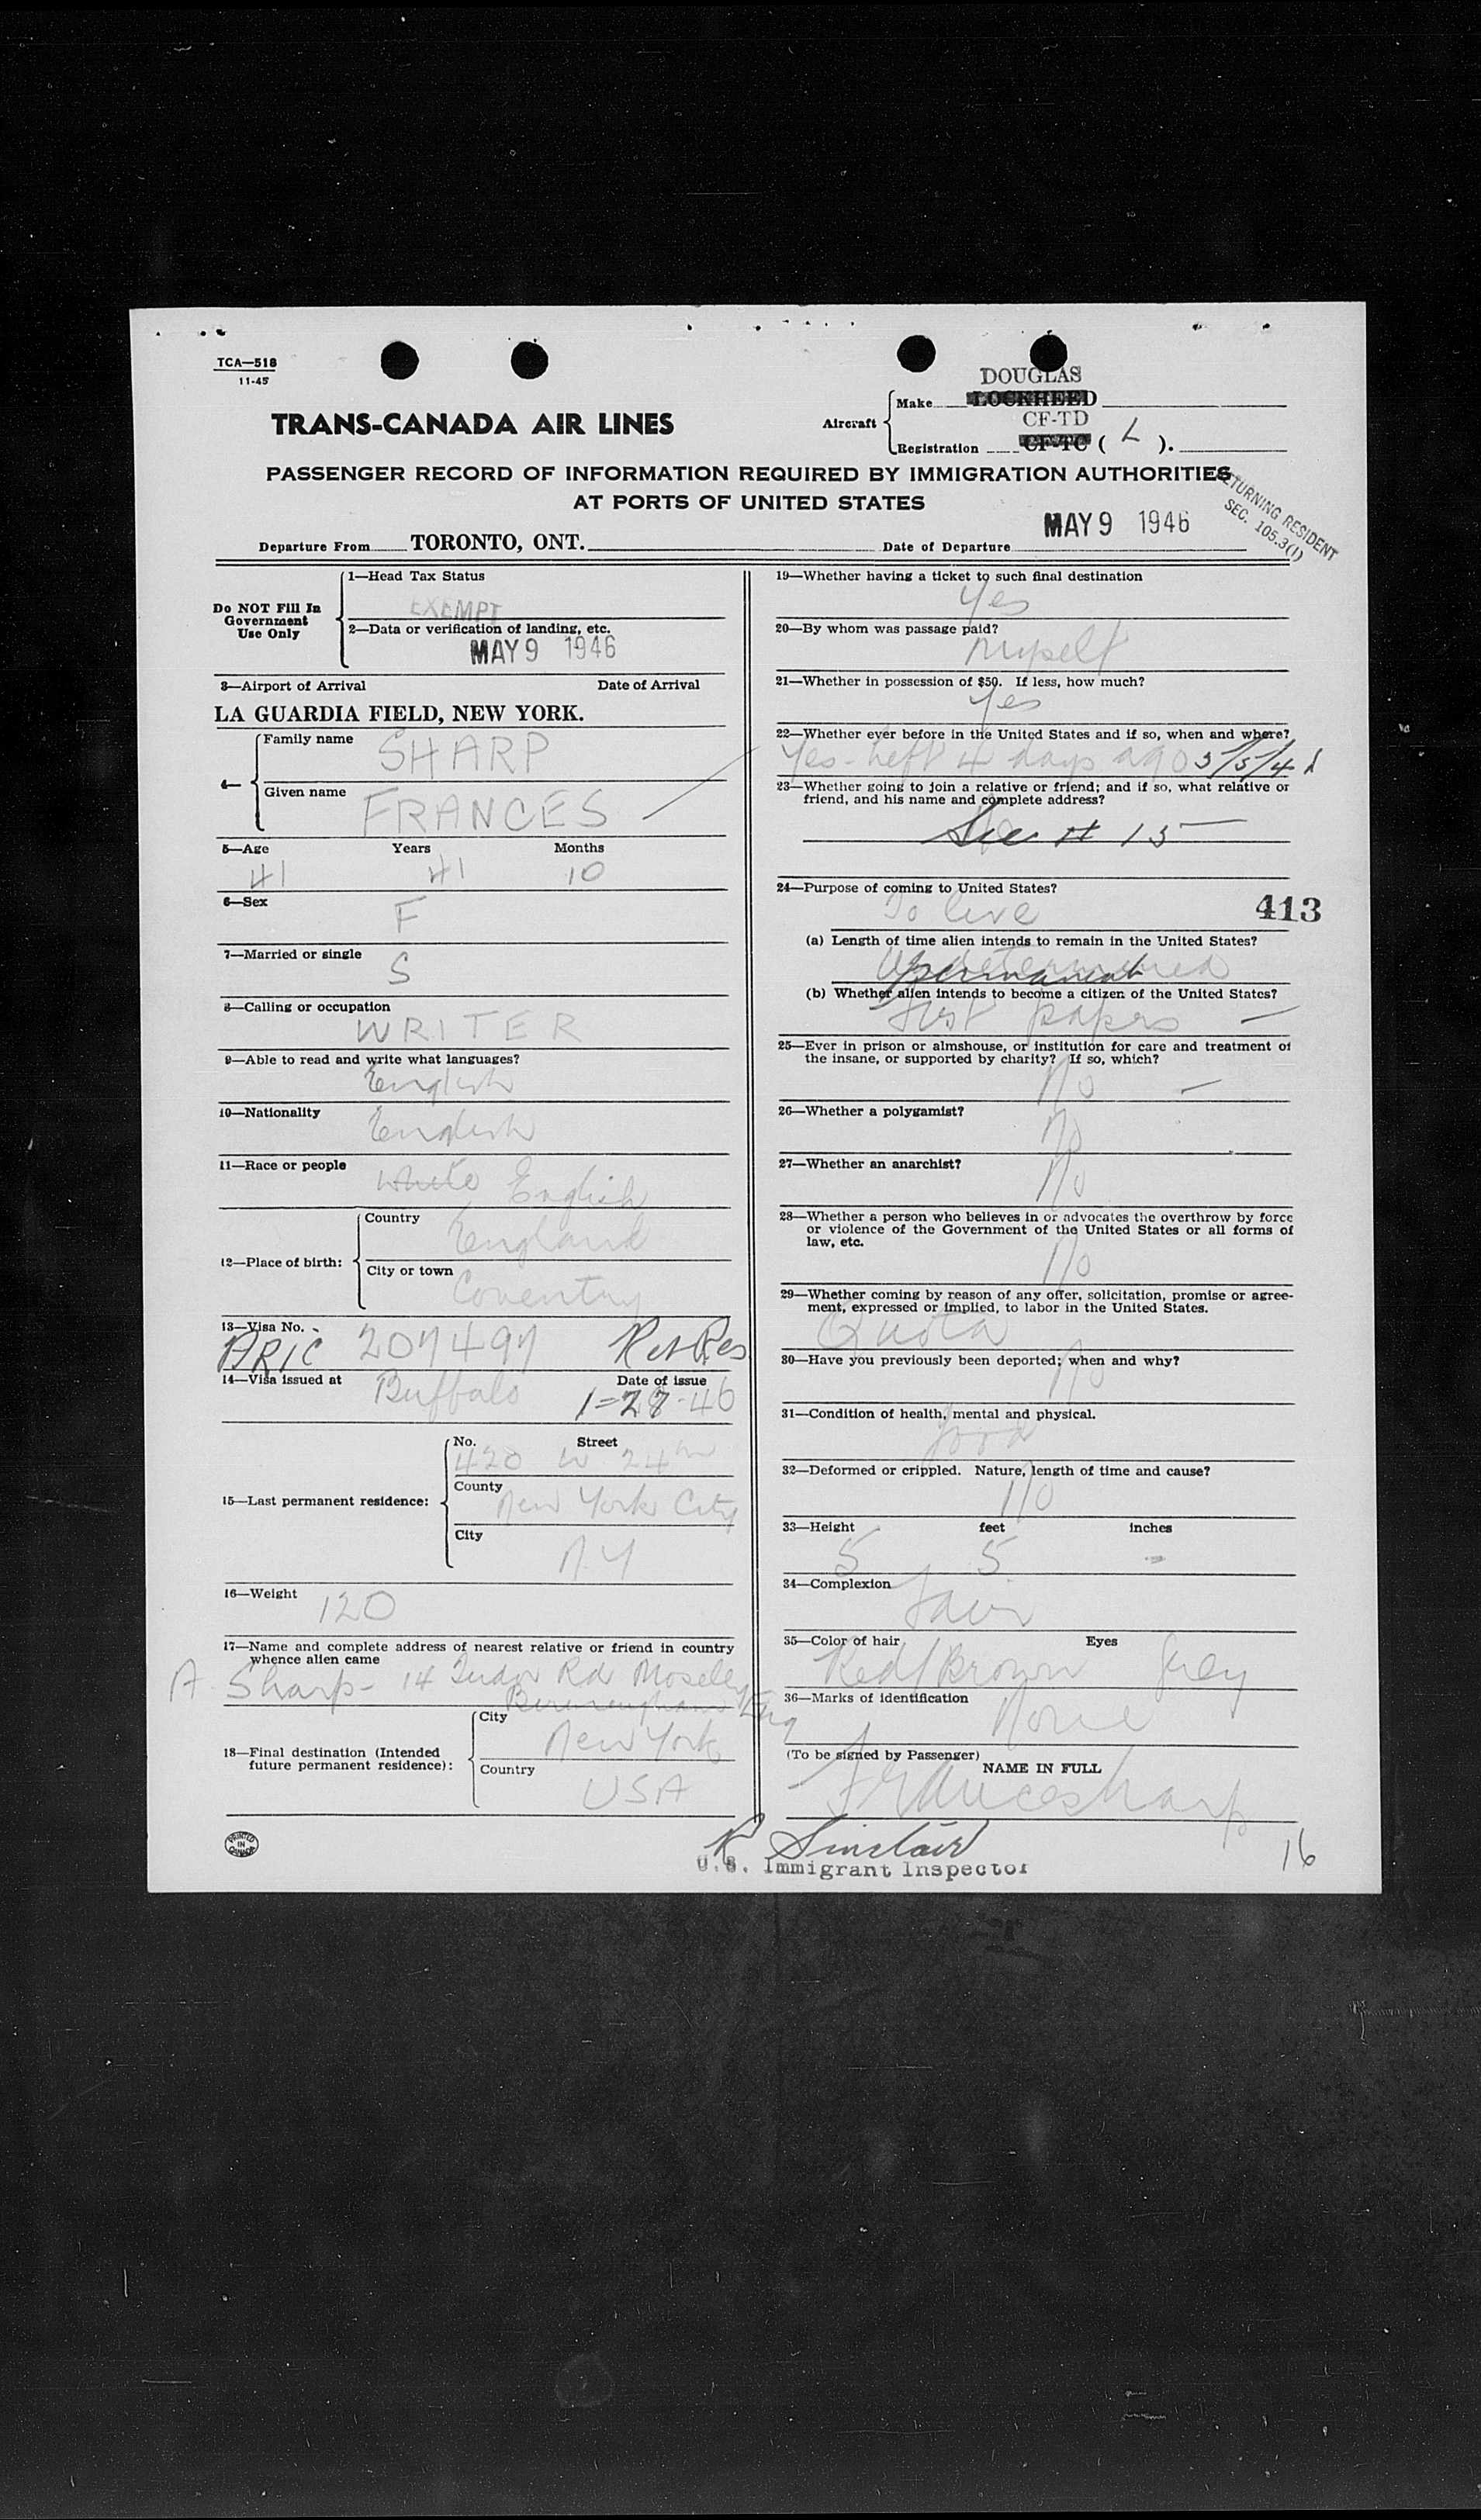 TCA—518
11-45
TRANS-CANADA AIR LINES
DOUGLAS
Aircraft
Make LOCKHEED
CF-TD
Registration CF-TC ( L ).
PASSENGER RECORD OF INFORMATION REQUIRED BY IMMIGRATION AUTHORITIES
AT PORTS OF UNITED STATES
RETURNING RESIDENT
SEC. 105.3(1)
Departure From TORONTO, ONT. Date of Departure MAY 9 1946
Do NOT Fill In
Government
Use Only
1—Head Tax Status
EXEMPT
2—Data or verification of landing, etc.
MAY 9 1946
3—Airport of Arrival Date of Arrival
LA GUARDIA FIELD, NEW YORK.
4—
Family name SHARP
Given name FRANCES
5—Age Years Months
41 41 10
6—Sex F
7—Married or single S
8—Calling or occupation
WRITER
9—Able to read and write what languages?
English
10—Nationality
English
11—Race or people
white English
12—Place of birth:
Country
England
City or town
Coventry
13—Visa No.
ARIC 207497 Ret Res
14—Visa issued at Buffalo Date of issue
1-28-46
15—Last permanent residence:
No. Street
420 W 24th
County
New York City
City
N.Y
16—Weight 120
17—Name and complete address of nearest relative or friend in country
whence alien came
A. Sharp - 14 Tudor Rd Moseley
Birmingham Eng
18—Final destination (Intended
future permanent residence):
City
New York
Country
USA
PRINTED
IN
CANADA
19—Whether having a ticket to such final destination
Yes
20—By whom was passage paid?
myself
21—Whether in possession of $50. If less, how much?
Yes
22—Whether ever before in the United States and if so, when and where?
Yes - left 4 days ago 5/5/46
23—Whether going to join a relative or friend; and if so, what relative or
friend, and his name and complete address?
See # 15
24—Purpose of coming to United States?
To live
413
(a) Length of time alien intends to remain in the United States?
Undetermined permanent
(b) Whether alien intends to become a citizen of the United States?
first papers —
25—Ever in prison or almshouse, or institution for care and treatment of
the insane, or supported by charity? If so, which?
No —
26—Whether a polygamist?
No
27—Whether an anarchist?
No
28—Whether a person who believes in or advocates the overthrow by force
or violence of the Government of the United States or all forms of
law, etc.
No
29—Whether coming by reason of any offer, solicitation, promise or agree-
ment, expressed or implied, to labor in the United States.
Quota
30—Have you previously been deported; when and why?
No
31—Condition of health, mental and physical.
Good
32—Deformed or crippled. Nature, length of time and cause?
No
33—Height feet inches
5 5 -
34—Complexion
Fair
35—Color of hair Eyes
Red/Brown Grey
36—Marks of identification
None
(To be signed by Passenger)
NAME IN FULL
Frances Sharp
K Sinclair
U.S. Immigrant Inspector
16